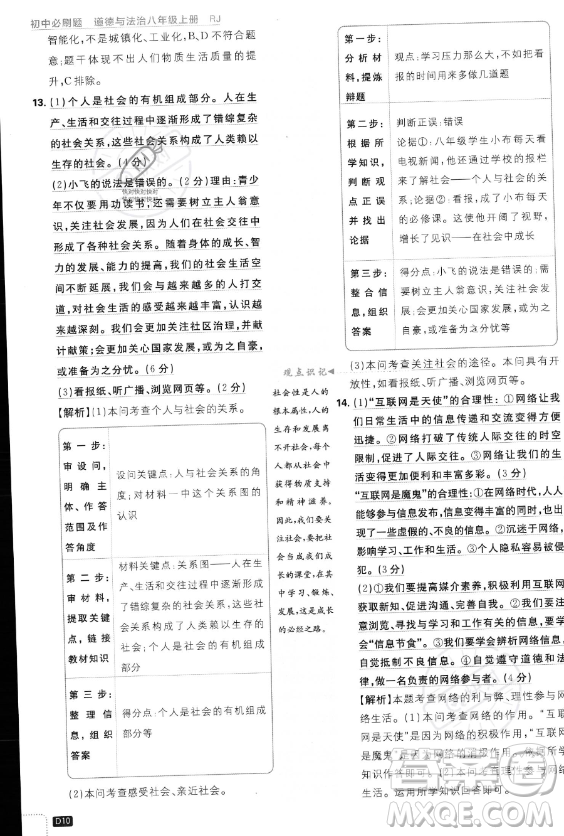 初中必刷题 道德与法治八年级上册 RJ
智能化,不是城镇化、工业化,B、D不符合题
意;题干体现不出人们物质生活质量的提
升,C排除。
13. (1)个人是社会的有机组成部分。人们在生
产、生活的交往过程中逐渐形成了错综复
杂的社会关系,这些社会关系构成了人类赖以
生存的社会。(4分)
(2)小飞的说法是错误的。(2分)理由:青少
年不仅要用功读书,还需要树立主人翁意
识,关注社会发展,因为人们在社会交往中
形成了各种社会关系。随着我们的社会生活空间
不断延展,我们会与越来越多的人打交
道,对社会生活的感受越来越丰富,认识越来
越深刻。我们要关注社区治理,并
献计献策;会更加关心国家发展,或自豪,或
忧虑,或准备为之分忧。(6分)
(3)看报纸、听广播、浏览网页等。(2分)
【解析】(1)本问考查个人与社会的关系。
第一步:
审设问,
明确主
体、作答
范围及作
答角度
设问关键点:人与社会关系的角
度;对材料一中这个关系图的
认识
第二步:
审材料,
提取关键
点,链接
教材知识
材料关键点:关系图——人在生
产、生活的交往过程中逐渐形成
了错综复杂的社会关系,这些社
会关系构成了人类赖以生存的
社会
第三步:
整理信
息,组织
答案
得分点:个人是社会的有机组成
部分等
(2)本问考查感受社会、亲近社会。
D10
观点识记
社会性是人的
根本属性,人的
生存和发展离
不开社会,每个
人都从社会中
获得物质支持
和精神滋养。
因此,我们要
关注社会;社会
是我们成长
的课堂,在其
中学习、锻炼、
发展,是成长
的必经之路。
第一步:
分析材
料,提炼
辩题
观点:学习压力那么大,不如把看
报的时间用来多做几道题
第二步:
根据所
学知识,
判断观
点正误
并找出
论据
判断正误:错误
论据①:八年级学生小布每天看
电视新闻,他以学校的报栏
来了解社会——个人与社会的关
系;论据②:看报,成了小布每天
的必修课。这开阔了他的视野,
增长了他的见识——在社会中成长
第三步:
整合信
息,组织
答案
得分点:小飞的说法是错误的;
需要树立主人翁意识,关注社会
发展;更加关心国家发展,或自
豪,或忧虑,或准备为之分忧等
(3)本问考查关注社会的途径。本问具有开
放性,如看报纸、听广播、浏览网页等。
14. (1)“互联网是天使”的合理性:①网络让我
们日常生活中的信息传递和交流变得方便
迅捷。②网络打破了传统人际交往的时空
限制,促进了人际交往。(3分)
“互联网是魔鬼”的合理性:①网络让人人
能够参与信息发布,信息丰富的同时,出现
了一些虚假的、不良信息。②沉迷于网络,
影响学习、工作和生活。(3分)
(2)①我们要提高媒介素养,积极利用互联网
获取新知、促进沟通、完善自我。②我们要
注意浏览、寻找与学习和工作有关的信息,学会
“信息节食”。③我们要学会辨析网络信息,
让谣言止于智者。④我们要自觉遵守道德和法
律,做一名负责的网络参与者。(4分)
【解析】本题考查网络的利与弊、理性参与网
络生活。(1)本问考查网络的作用。“互联网
是天使”是因为网络的积极作用,“互联网
是魔鬼”是因为网络的消极作用。
知识作答即可。(2)